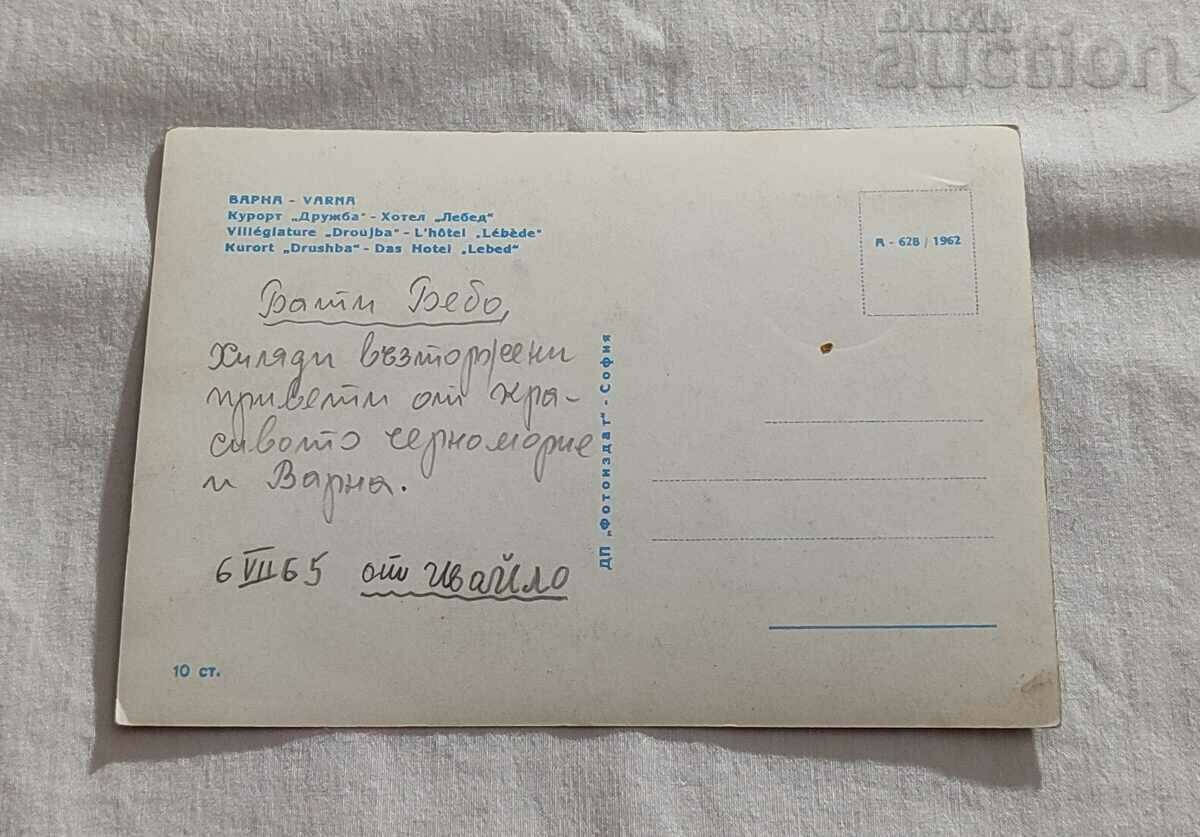 ВАРНА - VARNA
Курорт „Дружба" - Хотел „Лебед"
Villégiature „Droujba" - L'hôtel „Lébède"
Kurort „Drushba" - Das Hotel „Lebed"
А - 628 / 1962
Бати Бебо,
Хиляди възторжени
привети от кра-
сивото черноморие
и Варна.
6 VII 65 от Ивайло
ДП „Фотоиздат" - София
10 ст.